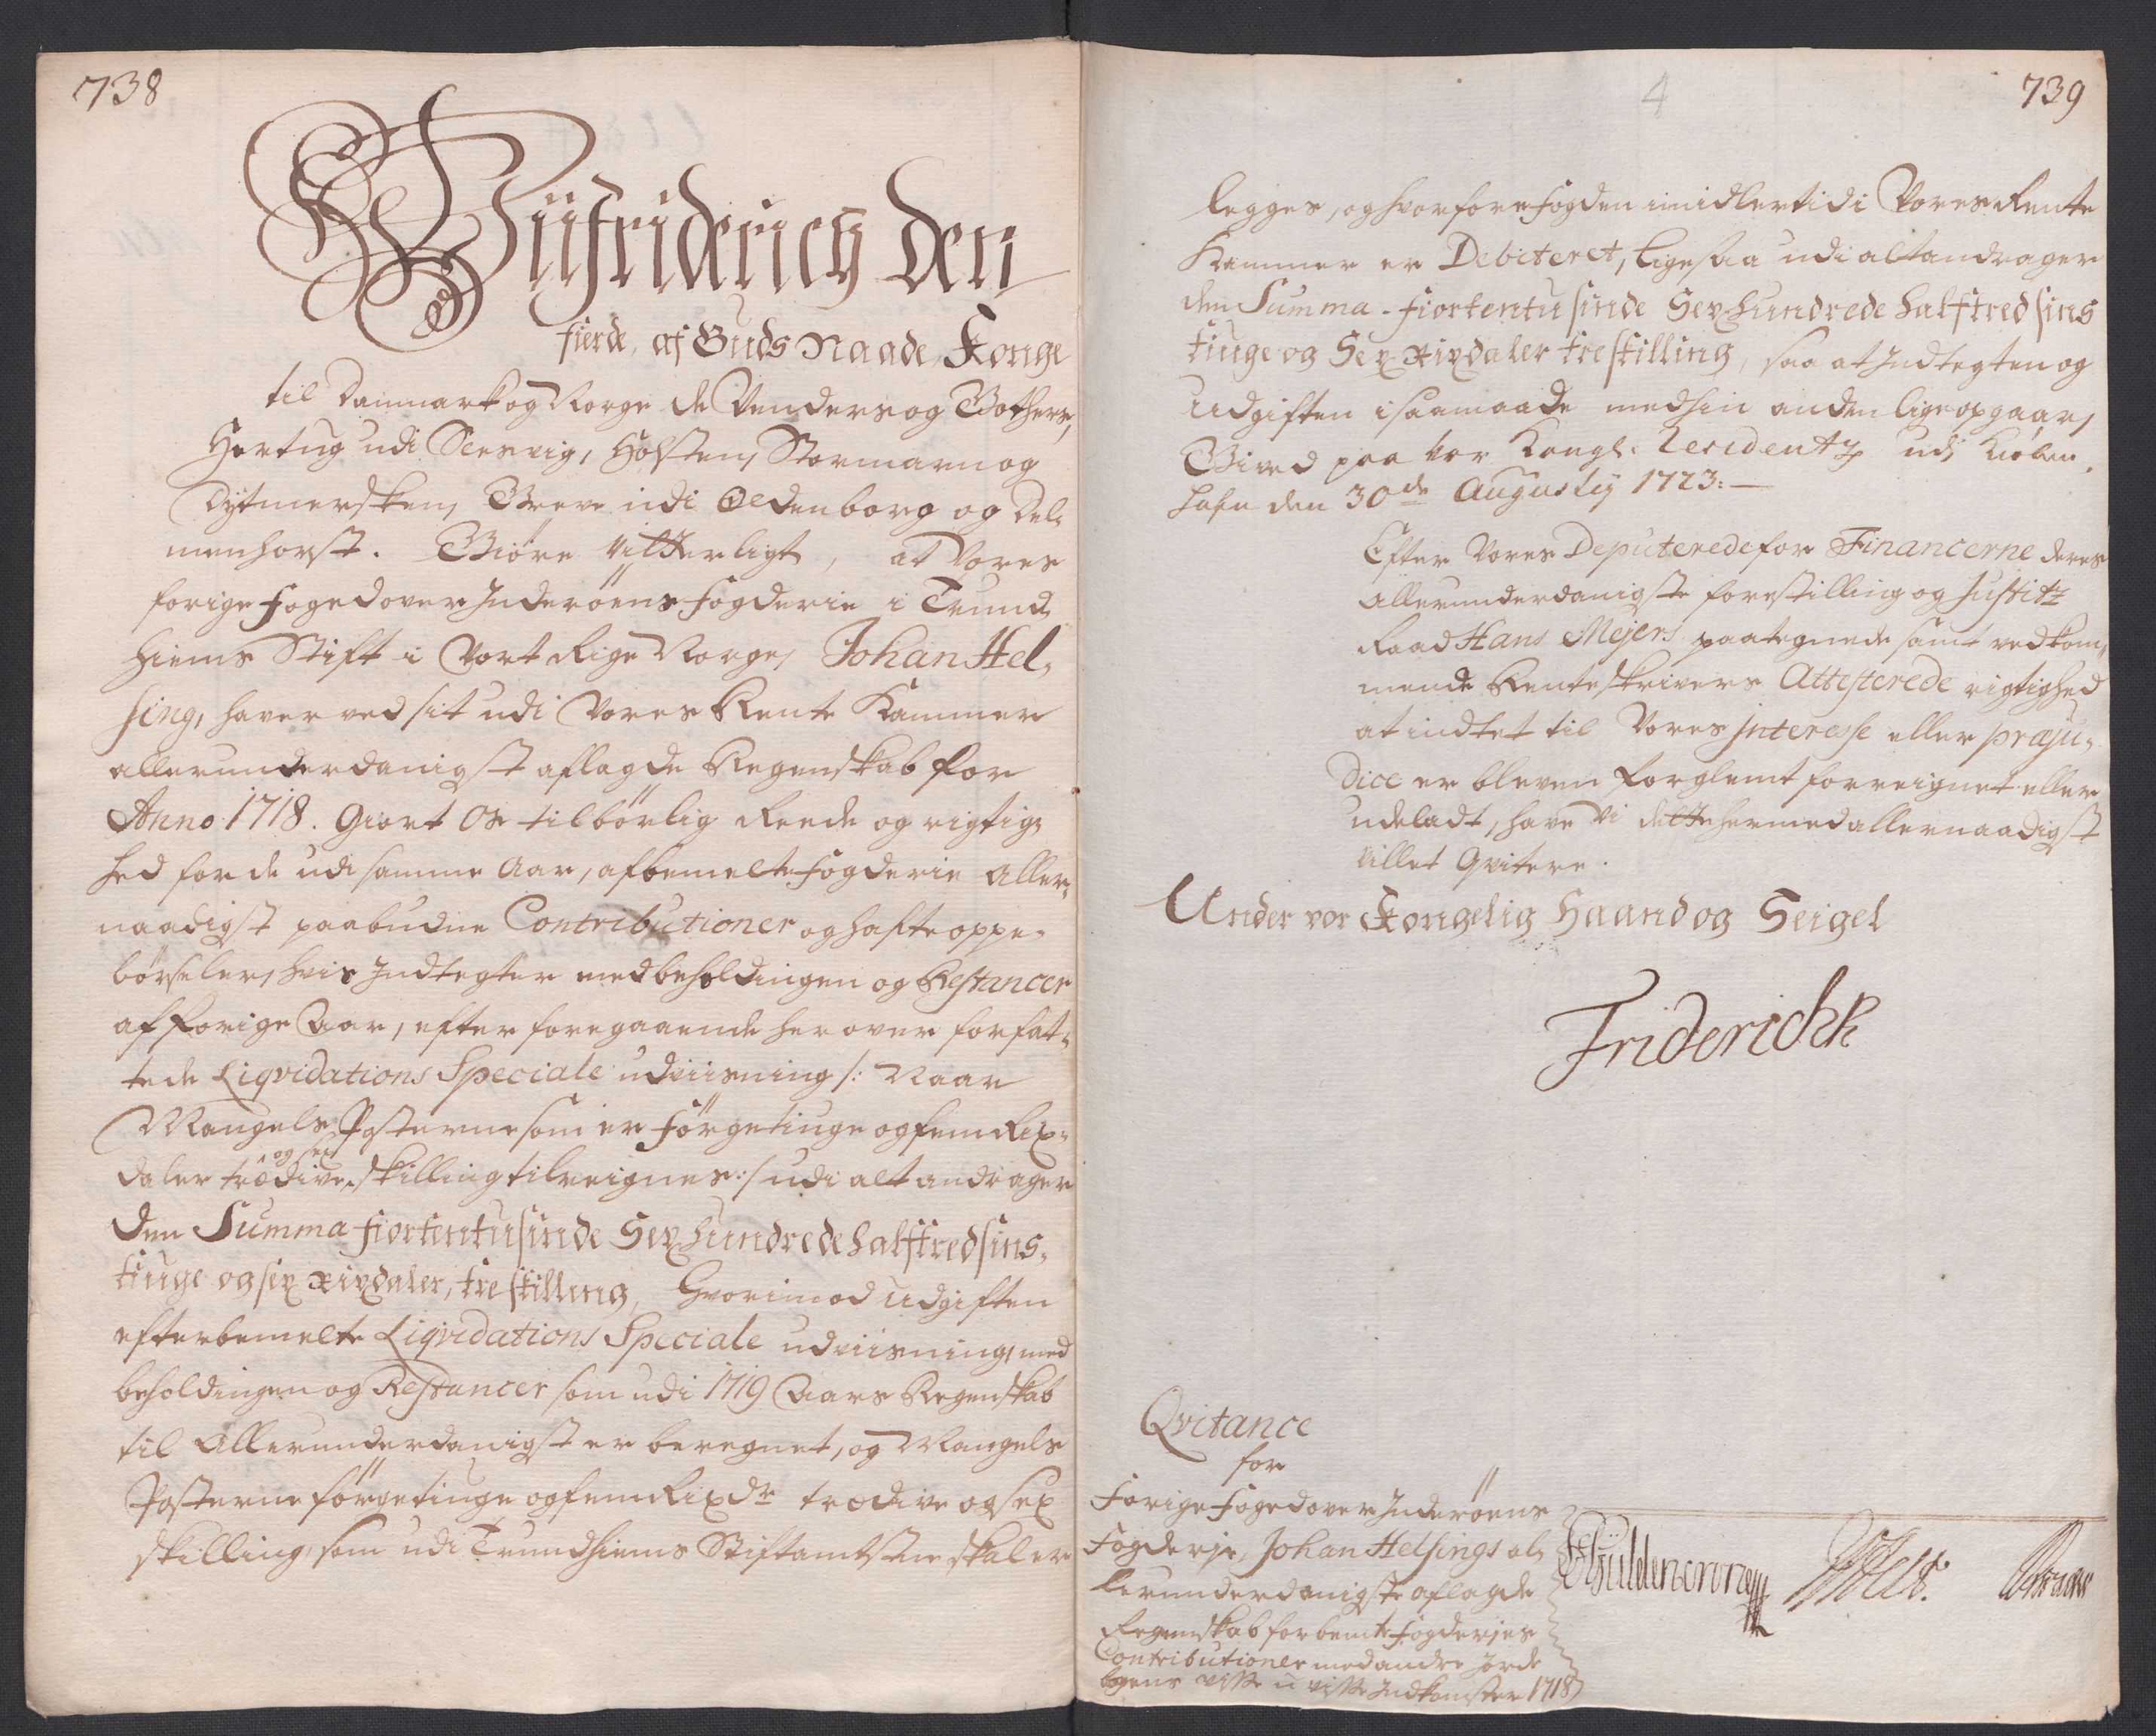 738
Wii Friderich den
fierde, af Guds Naade, Konge
til Danmark og Norge de Venders og Gothers,
Hertug udi Slesvig, Holsten, Stormarn og
Dytmersken, Greve udi Oldenborg og Del-
menhorst. Giøre vitterligt, at Vores
forige foged over Inderöens fogderie i Trund-
hiems Stift i Vort Rige Norge, Johan Hel-
sing, haver ved sit udi Vores Rente Kammer
allerunderdanigst aflagde Regenskab for
Anno 1718. Giort Os tilbörlig Reede og rigtig-
hed for de udi samme Aar, af bemelte fogderie aller-
naadigst paabudne Contributioner og hafte oppe-
börseler, hvis Indtegter med beholdingen og Restancer
af forige Aar, efter foregaaende herover forfat-
tede Liqvidations Speciale udviisning /: Naar
Mangels Posterne som er förgetiuge og fem Rix-
daler trodive og sex skilling tilreignes :/ udi alt andrager
den Summa fiortentusinde Sexhundrede halftredsins-
tiuge og sex Rixdaler, tre skilling, Hvorimod udgiften
efter bemelte Liqvidations Speciale udviisning, med
beholdingen og Restancer som udi 1719 Aars Regenskab
til Allerunderdanigst er beregnet, og Mangels
Posterne förgetiuge og fem Rixdr trodive og sex
skilling, som udi Trundhiems Stiftamtstue skal er
4
739
legges, og hvorfore fogden imidlertid i Vores Rente
Kammer er Debiteret, ligesaa udi alt andrager
den Summa - fiortentusinde Sexhundrede halftredsins
tiuge og Sex Rixdaler tre skilling, saa at Indtegten og
Udgiften i saamaade med hin anden lige opgaar,
Gived paa Vor Kongl: Residentz udi Kiøben-
hafn den 30de Augustij 1723:
Efter Vores Deputerede for Financerne deres
allerunderdanigste forestilling og Justitz
Raad Hans Mejers paategnede samt vedkom-
mende Renteskrivers Attesterede rigtighed
at indtet til Vores Interesse eller præju-
dice er bleven forglemt forreignet eller
udeladt, have Vi dette hermed allernaadigst
villet Qvitere.
Under vor Kongelig Haand og Seigel
Friderich R
Qvitance
for
Forige foged over Inderöens
Fogderje, Johan Helsings al-
lerunderdanigste aflagde
Regenskab for bemte fogderjes
Contributioner med andre Jorde
bogens visse u visse Indkomster 1718
Gyldencrone